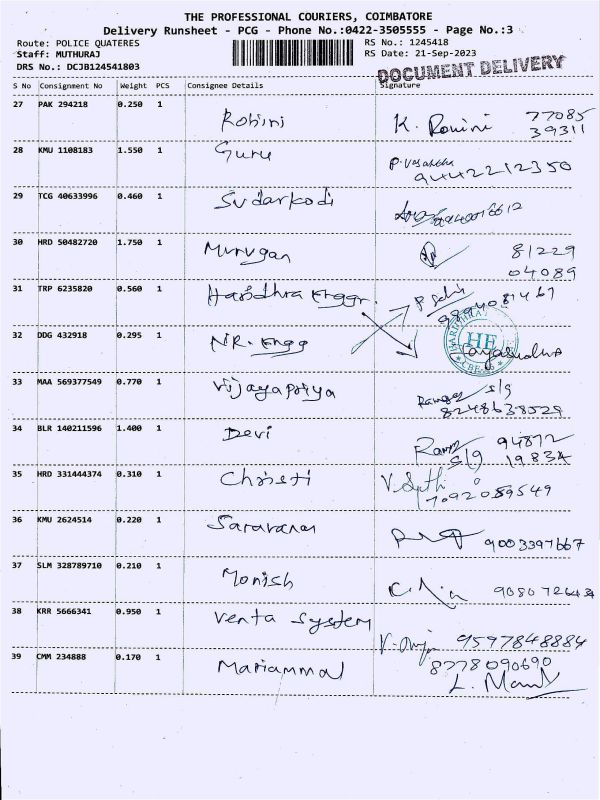 THE PROFESSIONAL COURIERS, COIMBATORE
Delivery Runsheet - PCG - Phone No.:0422-3505555 - Page No.:3
Route: POLICE QUATERES RS No.: 1245418
Staff: MUTHURAJ RS Date: 21-Sep-2023
DRS No.: DCJB124541803 DOCUMENT DELIVERY
S No Consignment No Weight PCS Consignee Details Signature
27 PAK 294218 0.250 1 Rohini K. Romini 77085
39311
28 KMU 1108183 1.550 1 Guru
9442212350
29 TCG 40633996 0.460 1 Sudarkodi
30 HRD 50482720 1.750 1 Murugan 81229
04089
31 TRP 6235820 0.560 1 Haridhra Enggr.
32 DDG 432918 0.295 1 NR. Engg HE
33 MAA 569377549 0.770 1 Vijayapriya s/g
8248638529
34 BLR 140211596 1.400 1 Devi 94872
s/g 19834
35 HRD 331444374 0.310 1 Christi
7092089549
36 KMU 2624514 0.220 1 Saravanan 9003397667
37 SLM 328789710 0.210 1 Monish 9080726434
38 KRR 5666341 0.950 1 Venta System
9597848884
39 CMM 234888 0.170 1 Mariammal 8778090690